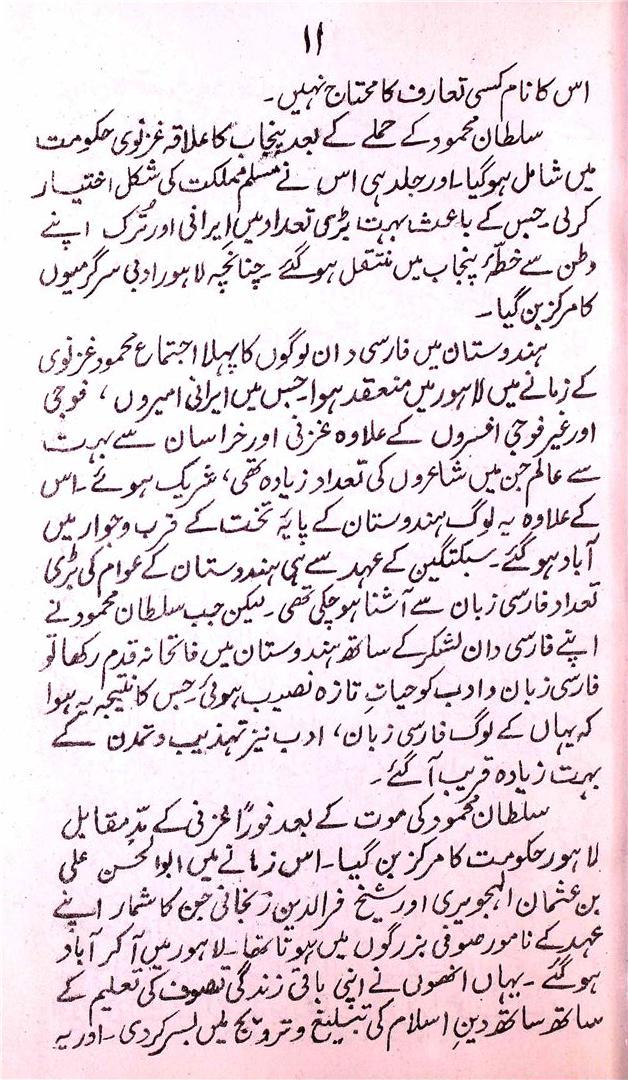 ۱۱
اس کا نام کسی تعارف کا محتاج نہیں ۔
سلطان محمود کے حملے کے بعد پنجاب کا علاقہ غزنوی حکومت
میں شامل ہوگیا۔ اور جلد ہی اس نے مسلم مملکت کی شکل اختیار
کرلی ۔ جس کے باعث بہت بڑی تعداد میں ایرانی اور تُرک اپنے
وطن سے خطّۂ پنجاب میں منتقل ہوگئے ۔ چنانچہ لاہور ادبی سرگرمیوں
کا مرکز بن گیا۔
ہندوستان میں فارسی دان لوگوں کا پہلا اجتماع محمود غزنوی
کے زمانے میں لاہور میں منعقد ہوا۔ جس میں ایرانی امیروں ، فوجی
اور غیر فوجی افسروں کے علاوہ غزنی اور خراسان سے بہت
سے عالم جن میں شاعروں کی تعداد زیادہ تھی، شریک ہوئے ۔ اس
کے علاوہ یہ لوگ ہندوستان کے پایۂ تخت کے قرب وجوار میں
آباد ہوگئے ۔ سبکتگین کے عہد سے ہی ہندوستان کے عوام کی بڑی
تعداد فارسی زبان سے آشنا ہوچکی تھی ۔ لیکن جب سلطان محمود نے
اپنے فارسی دان لشکر کے ساتھ ہندوستان میں فاتحانہ قدم رکھا تو
فارسی زبان و ادب کو حیاتِ تازہ نصیب ہوئی۔ جس کا نتیجہ یہ ہوا
کہ یہاں کے لوگ فارسی زبان، ادب نیز تہذیب و تمدن کے
بہت زیادہ قریب آگئے ۔
سلطان محمود کی موت کے بعد فوراً غزنی کے مدِّ مقابل
لاہور حکومت کا مرکز بن گیا۔ اس زمانے میں ابوالحسن علی
بن عثمان الہجویری اور شیخ فرالدین زنجانی جن کا شمار اپنے
عہد کے نامور صوفی بزرگوں میں ہوتا تھا۔ لاہور میں آکر آباد
ہوگئے ۔ یہاں انھوں نے اپنی باقی زندگی تصوف کی تعلیم کے
ساتھ ساتھ دینِ اسلام کی تبلیغ و ترویج میں بسر کردی ۔ اور یہ